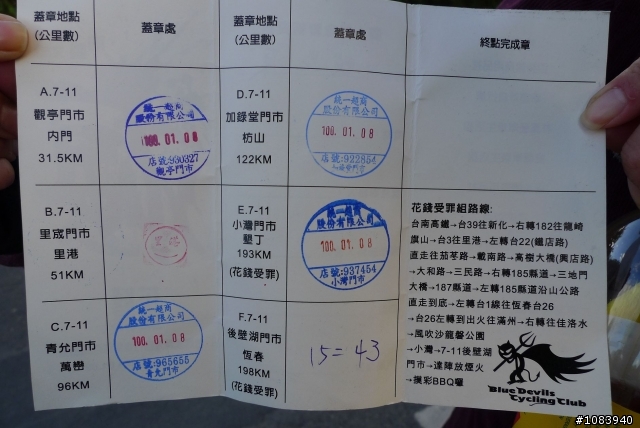 蓋章地點
(公里數)
蓋章處
蓋章地點
(公里數)
蓋章處
終點完成章
A.7-11
觀亭門市
內門
31.5KM
統一超商
股份有限公司
100. 01. 08
店號:930327
觀亭門市
D.7-11
加錄堂門市
枋山
122KM
統一超商
股份有限公司
100. 01. 08
店號:922854
加祿堂門市
B.7-11
里宬門市
里港
51KM
E.7-11
小灣門市
墾丁
193KM
(花錢受罪)
統一超商
股份有限公司
100. 01. 08
店號:937454
小灣門市
C.7-11
青允門市
萬巒
96KM
統一超商
股份有限公司
100. 01. 08
店號:965655
青允門市
F.7-11
後壁湖門市
恆春
198KM
(花錢受罪)
15=43
花錢受罪組路線:
台南高鐵→台39往新化→右轉182往龍崎
旗山→台3往里港→左轉台22(鐵店路)
直走往茄苳路→載南路→高樹大橋(興店路)
→大和路→三民路→右轉185縣道→三地門
大橋→187縣道→左轉185縣道沿山公路
直走到底→左轉台1線往恆春台26
→台26左轉到出火往滿州→右轉往佳洛水
→風吹沙龍磐公園
→小灣→7-11後壁湖
門市→達陣放煙火
→摸彩BBQ囉
Blue Devils
Cycling Club
#1083940